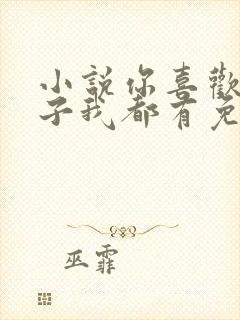 小説你喜歡
子我都有免
巫霏